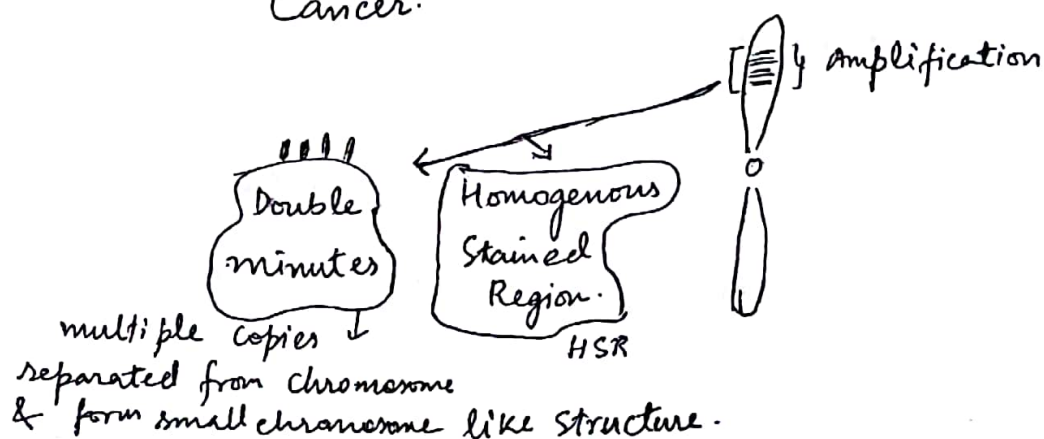 Cancer.
Amplification
Double
minutes
Homogenous
Stained
Region.
HSR
multiple copies
separated from chromosome
& form small chromosome like structure.